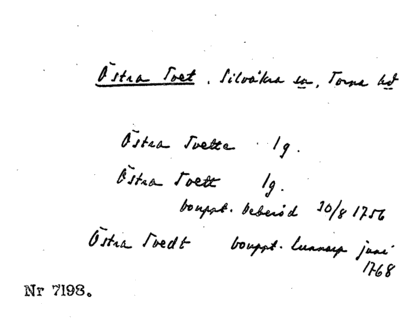 Östra Tvet, Silvåkra sn, Torna hd
Östra Tvette 1g.
Östra Tvett 1g.
bouppt. Veberöd 30/8 1756
Östra Tvedt bouppt. Lunnarp juni
1768
Nr 7193.